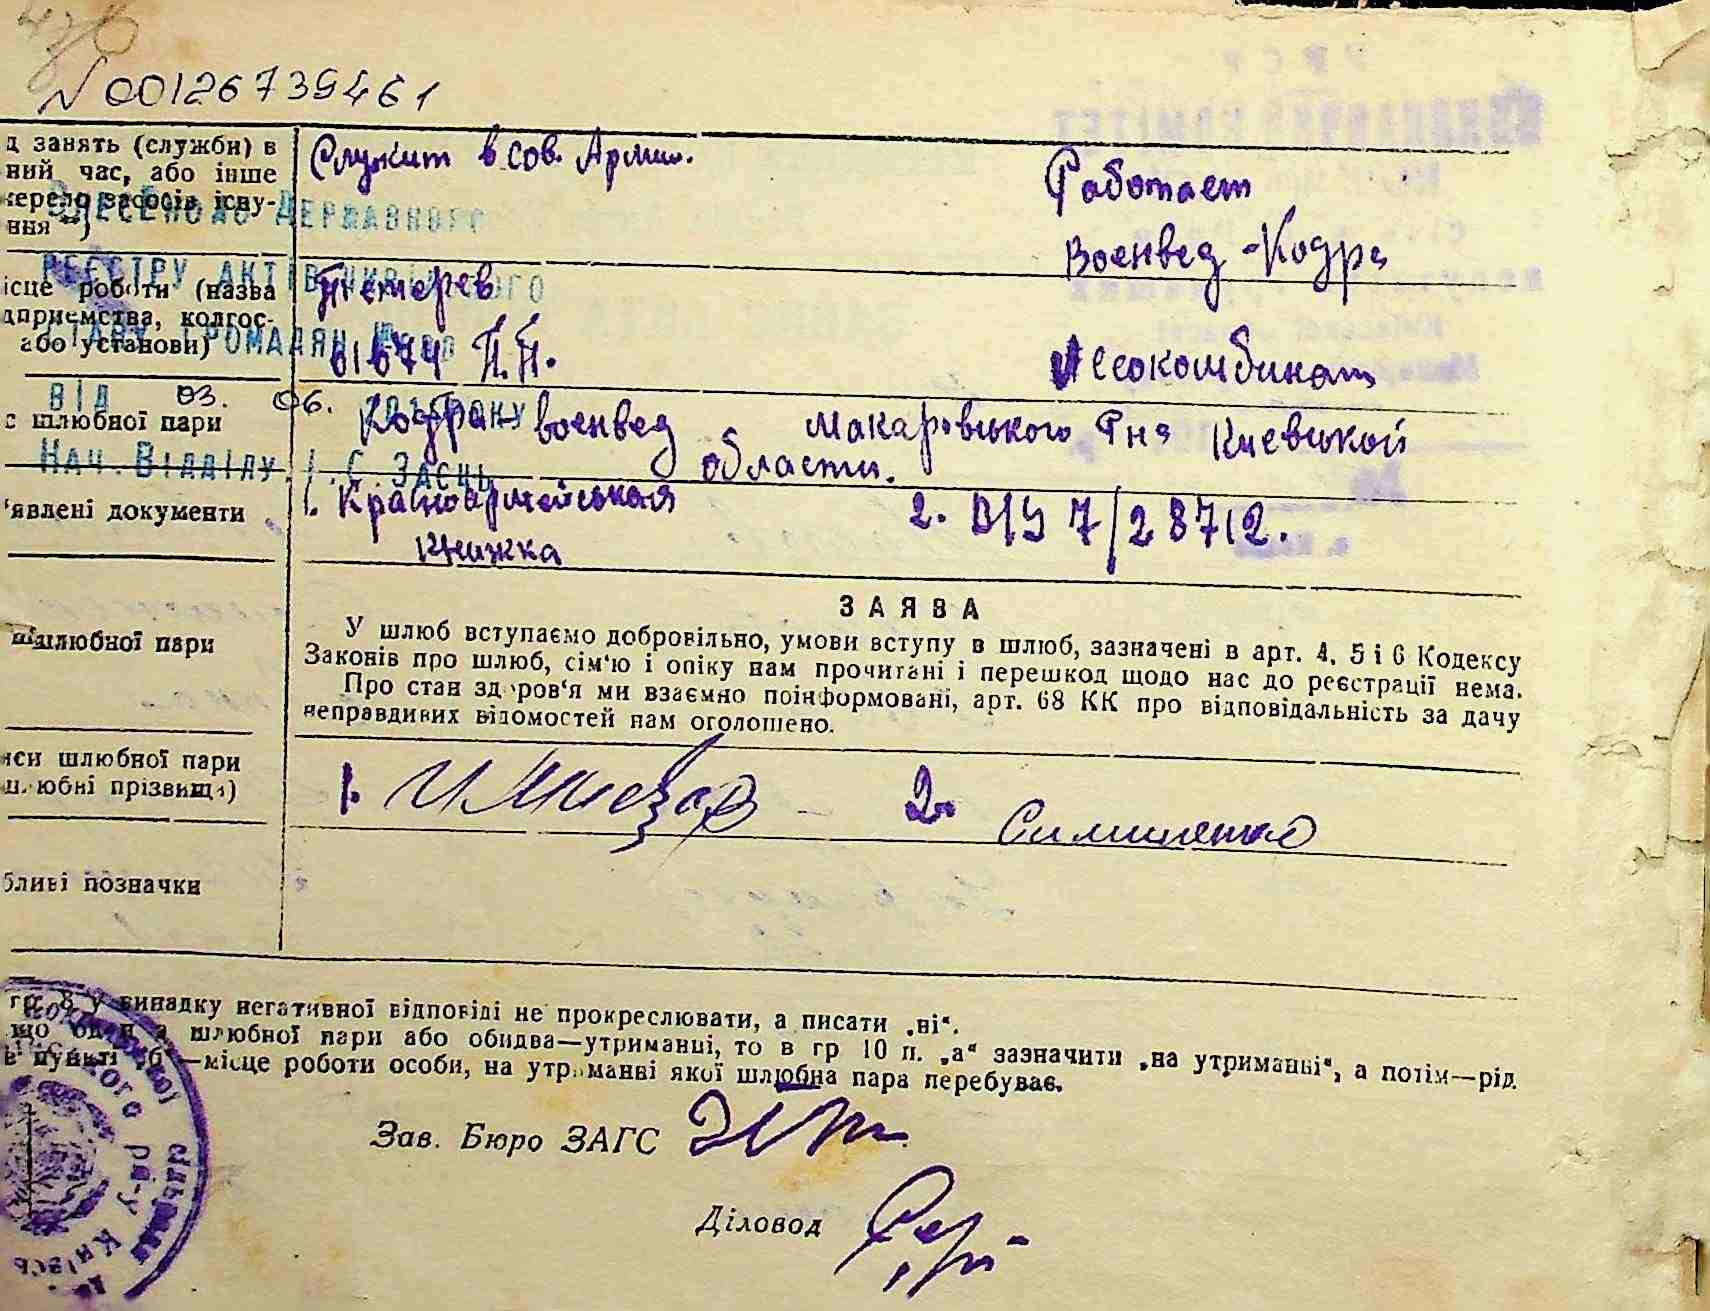 N 00126739461
д занять (служби) в
ний час, або інше
жерело засобів існу-
вня
Служит в сов. Армии.
Работает
Военвед - Кодра
ВНЕСЕНО ДО ДЕРЖАВНОГО
РЕЄСТРУ АКТІВ
ГРОМАДЯН
ВІД 03. 06.
НАЧ. ВІДДІЛУ
ЗАЄЦЬ
ісце роботи (назва
дприємства, колгос-
або установи)
Тетерев
61674 П.П.
Лесокомбинат
с шлюбної пари
Кодра военвед Макаровського Р-на Киевськой
области.
'явлені документи
1. Красноармейськая
книжка
2. 7/28712.
шлюбної пари
ЗАЯВА
У шлюб вступаємо добровільно, умови вступу в шлюб, зазначені в арт. 4, 5 і 6 Кодексу
Законів про шлюб, сім'ю і опіку нам прочитані і перешкод щодо нас до реєстрації нема.
Про стан здоров'я ми взаємно поінформовані, арт. 68 КК про відповідальність за дачу
неправдивих відомостей нам оголошено.
иси шлюбної пари
шлюбні прізвища)
1.
2. Симиненко
бливі позначки
гр. 8 у випадку негативної відповіді не прокреслювати, а писати „ні“.
що один з шлюбної пари або обидва—утриманці, то в гр 10 п. „а“ зазначити „на утриманні“, а потім—рід
в пункті „б“—місце роботи особи, на утриманні якої шлюбна пара перебуває.
Зав. Бюро ЗАГС
Діловод